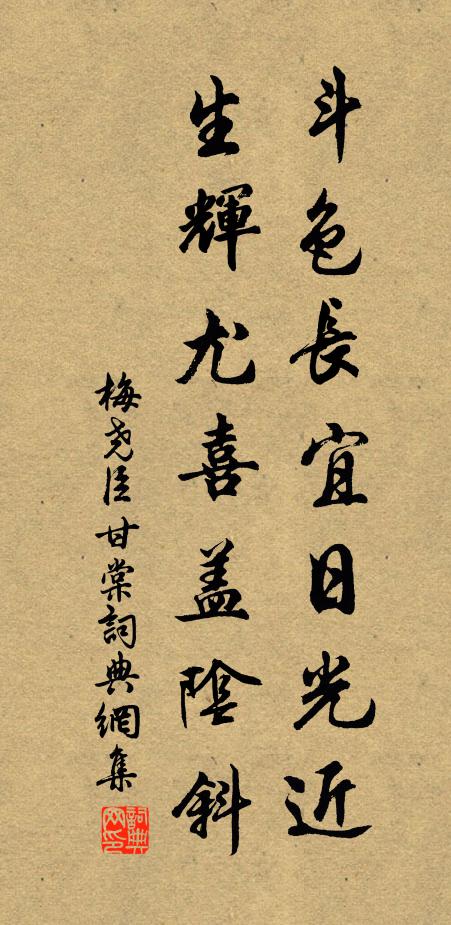 斗色長宜日光近
生輝尤喜蓋陰斜
梅尧臣甘棠詞典網集
詞典
网印